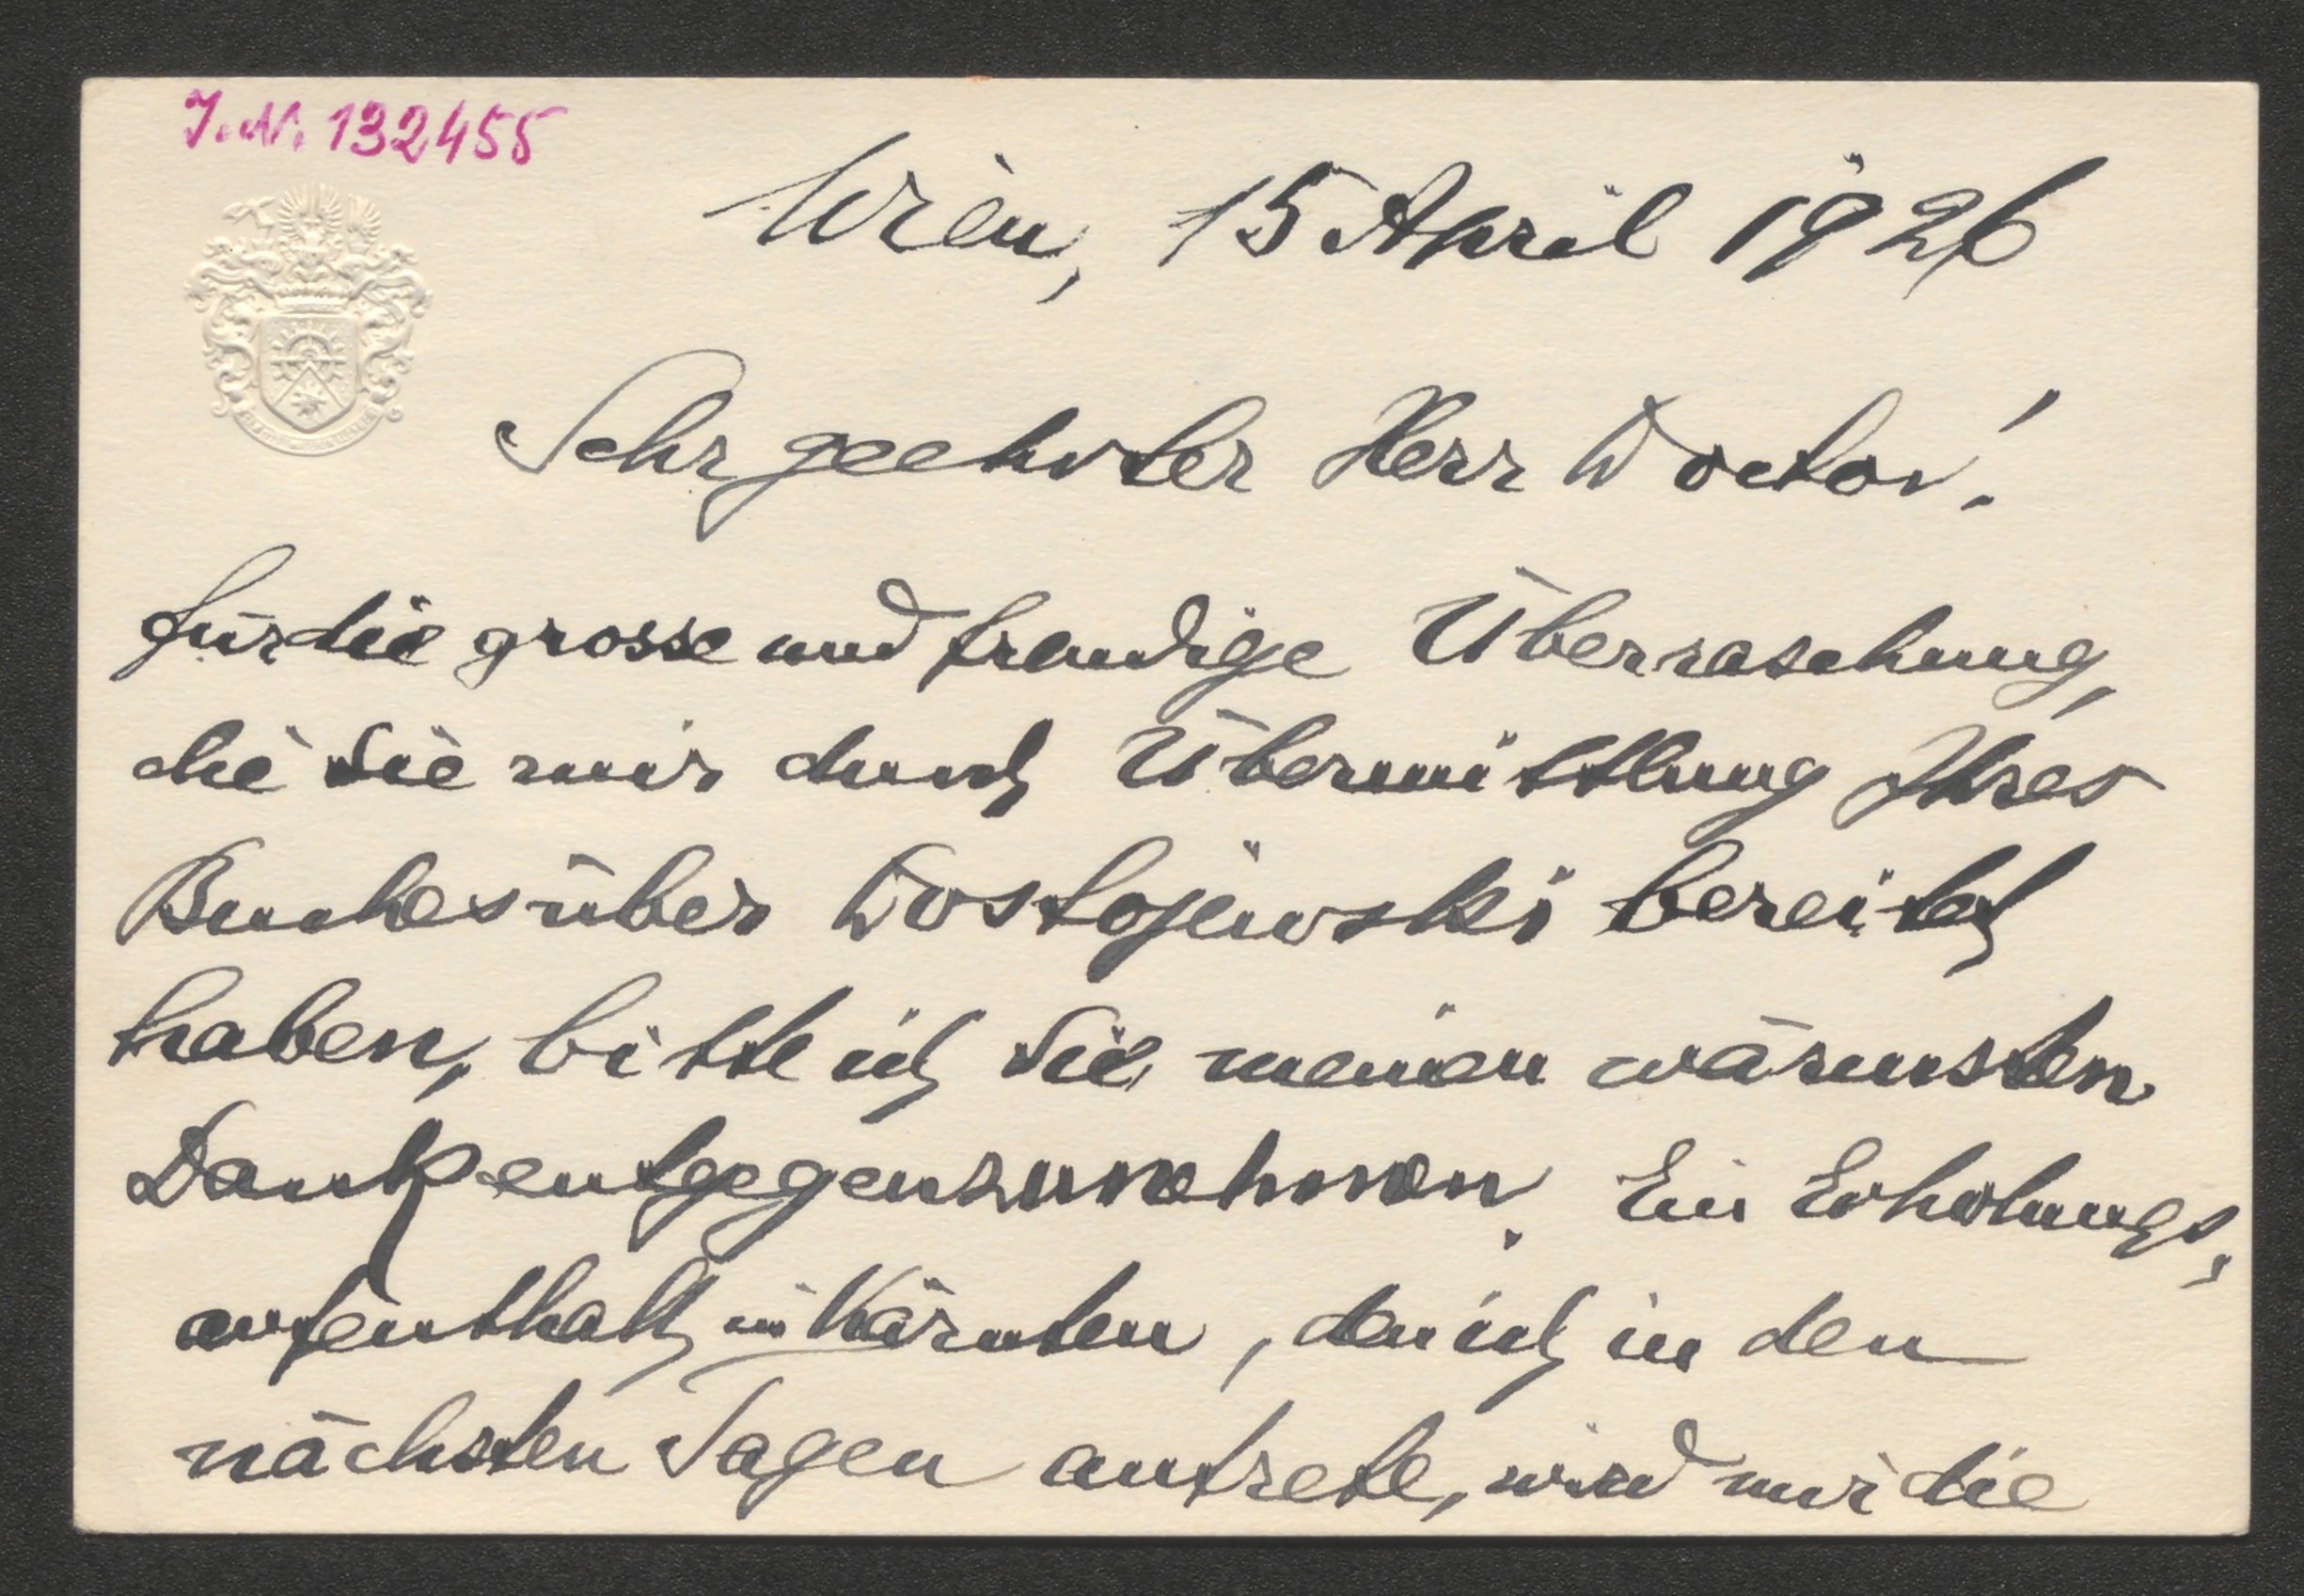 I.N. 132455
Wien, 15 April 1926
Sehr geehrter Herr Doctor!
für die grosse und freudige Überraschung,
die Sie mir durch Übermittlung Ihres
Buches über Dostojewski bereitet
haben, bitte ich Sie meinen wärmsten
Dank entgegenzunehmen. Ein Erholungs-
aufenthalt in Kärnten, den ich in den
nächsten Tagen antrete, wird mir die